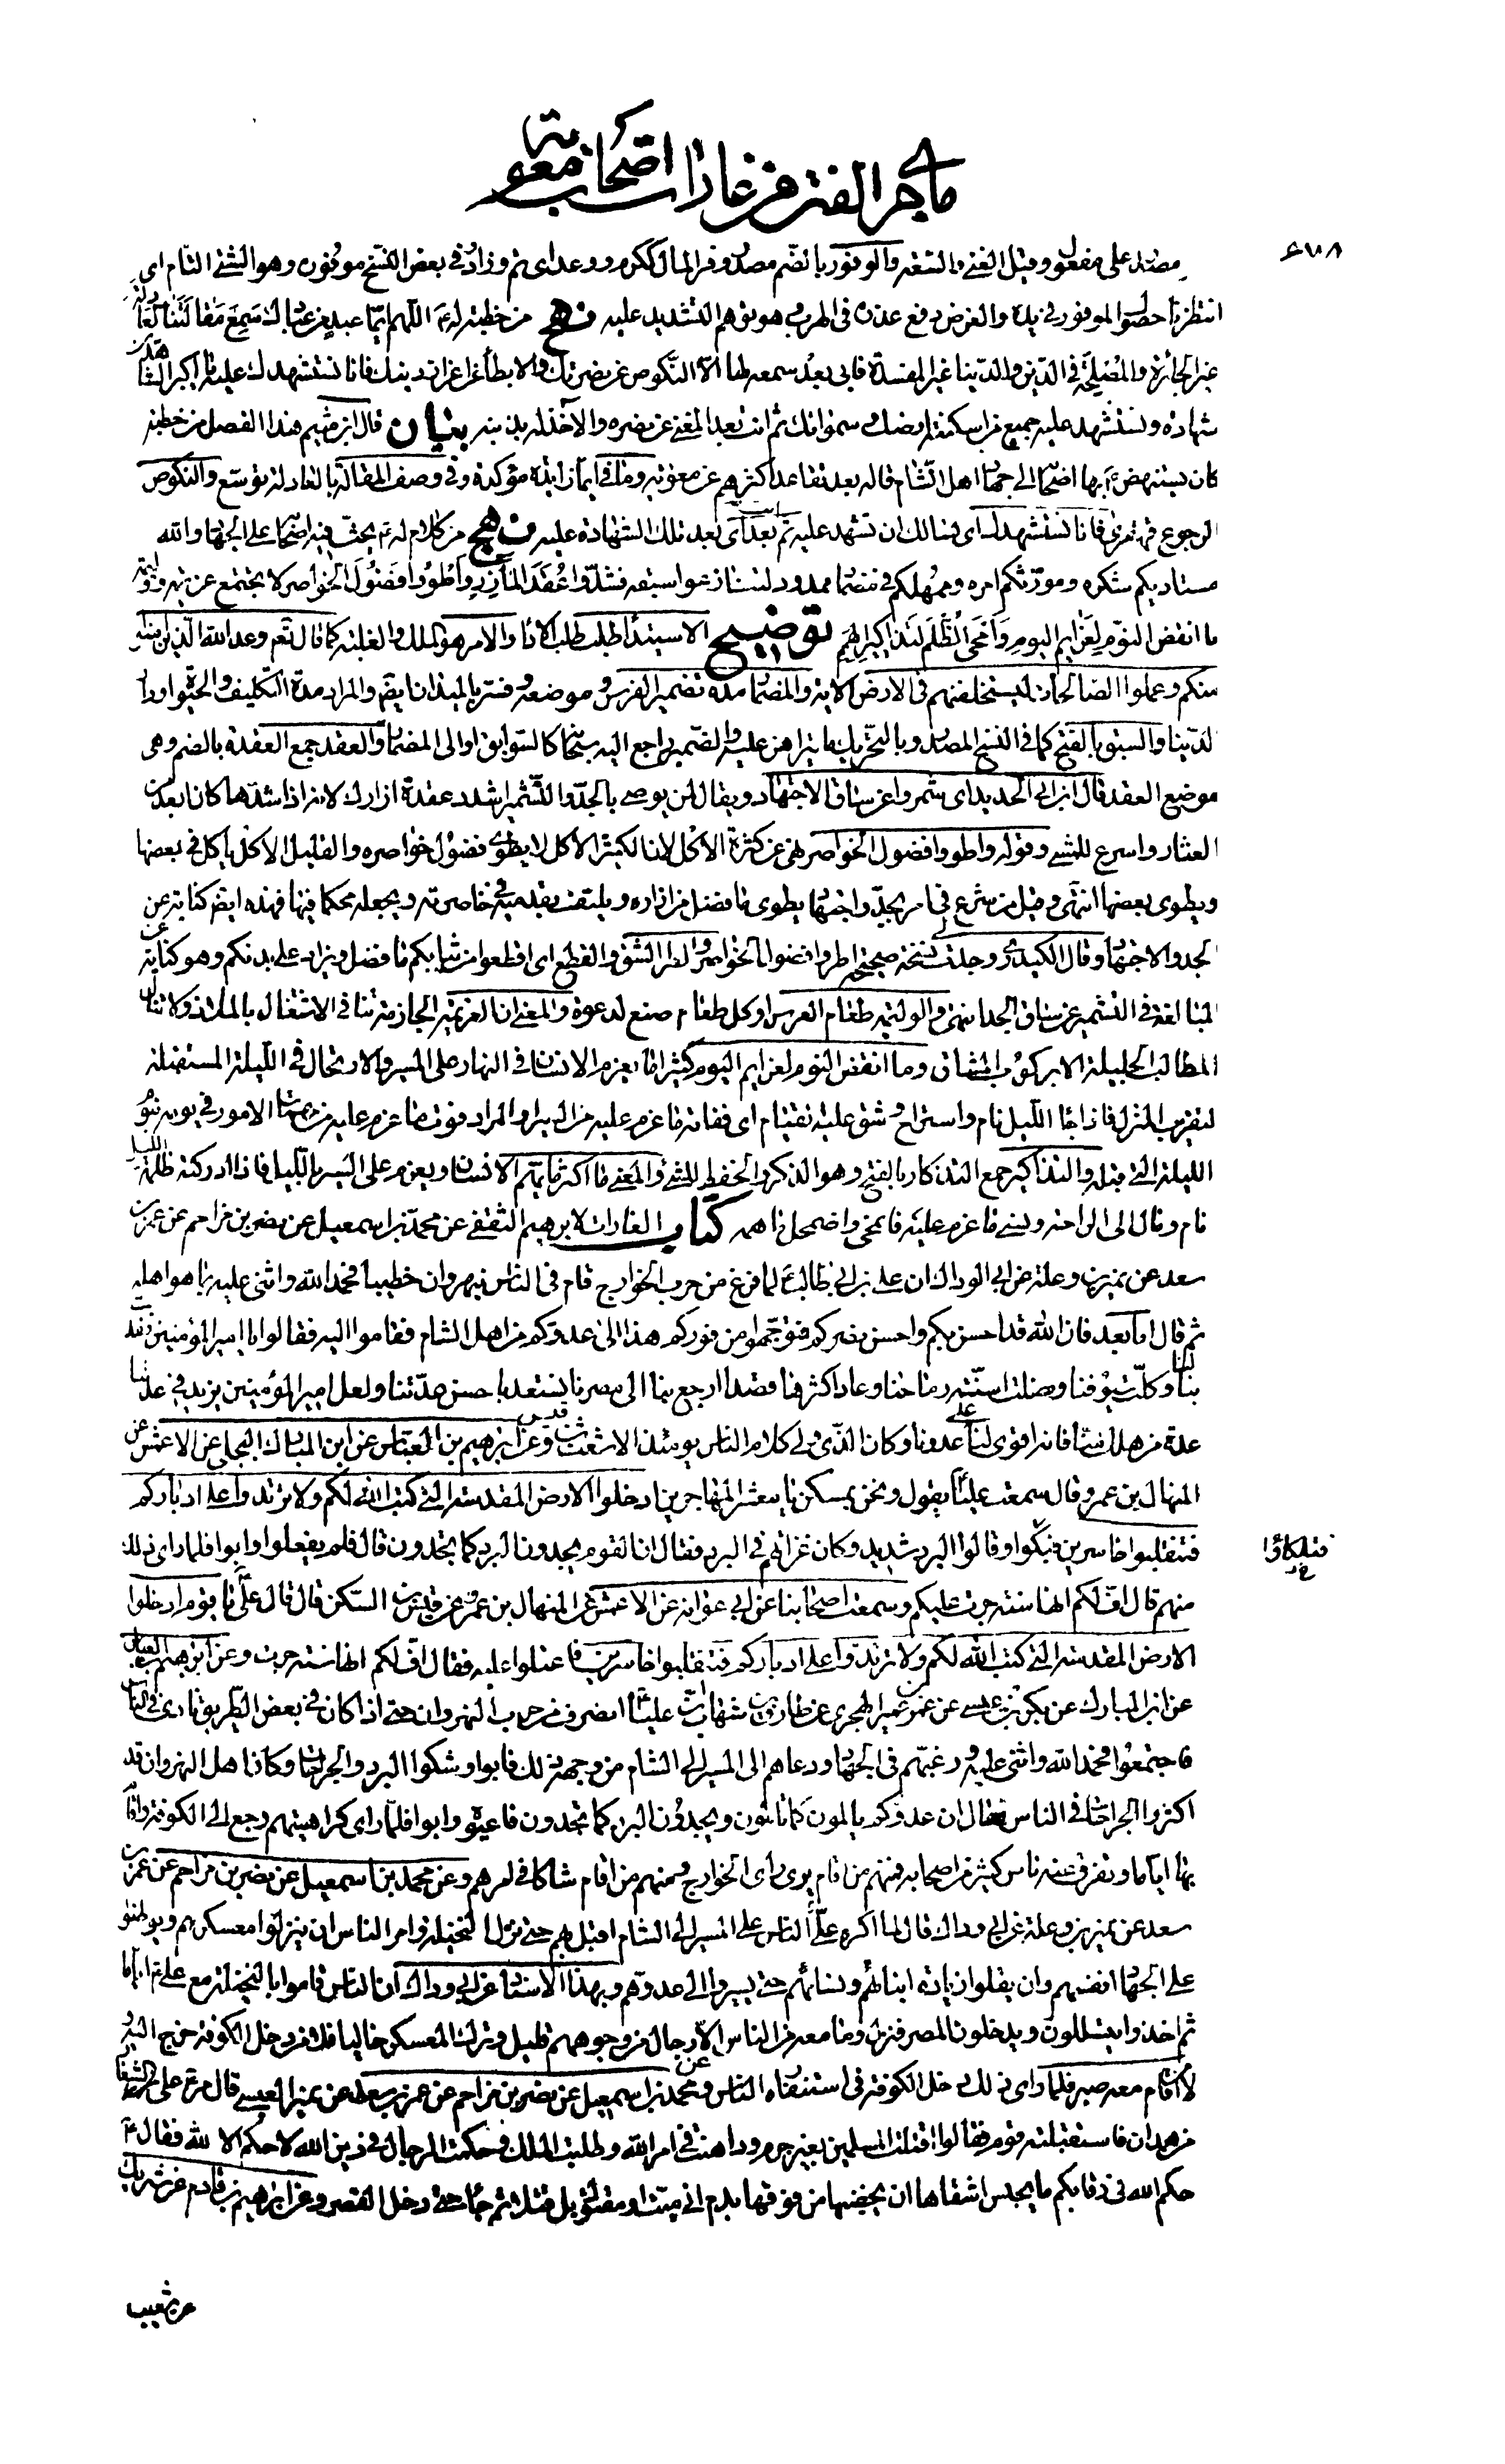 ما جرى من الفتن من غارات اصحاب معوية
٦٧٨
مصدر على مفعول وقيل الغنى والسعة والوفور بالضم مصدر وفر المال ككرم ووعد اى تم وزاد فى بعض النسخ موفوره وهو الشئ التام اى
انتظرنا حصول الموفور فى يده والغرض دفع عذره فى الهرب وهو توهم التشديد عليه نهج من خطبة له ع اللهم ايما عبد من عبادك سمع مقالتنا العادلة
غير الجائرة والمصلحة فى الدين والدنيا غير المفسدة فابى بعد سمعه لها الا النكوص عن نصرتك والابطاء عن اعزاز دينك فانا نستشهدك عليه يا اكبر الشاهدين
شهادة ونستشهد عليه جميع من اسكنته ارضك وسمواتك ثم انت بعد المغنى عن نصره والاخذ له بذنبه بيان قال ابن ميثم هذا الفصل من خطبة
كان يستنهض ع بها اصحابه الى جهاد اهل الشام قاله بعد تقاعد اكثرهم عن معوية وما فى ايما زايدة مؤكدة وفى وصف المقالة بالعادلة توسع والنكوص
الرجوع قهقرى فانا نستشهدك اى نسالك ان تشهد عليه ثم انت بعد اى بعد تلك الشهادة عليه نهج من كلام له ع يحث فيه اصحابه على الجهاد والله
مستاديكم شكره ومورثكم امره وممهلكم فى مضمار ممدود لتتنازعوا سبقه فشدوا عقد المآزر واطووا فضول الخواصر لا يجتمع عزيمة ووليمة
ما انقض النوم لعزايم اليوم وامحى الظلم لتذاكير الهمم توضيح الاستيداء طلب الاداء والامر هو الملك والغلبة كما قال تعم وعد الله الذين امنوا
منكم وعملوا الصالحات ليستخلفنهم فى الارض الاية والمضمار مدة تضمير الفرس وموضعه وفسر بالميدان ايضا والمراد مدة التكليف والحيوة او دار
الدنيا والسبق بالفتح كما فى النسخ المصدر وبالتحريك ما يتراهن عليه والضمير راجع اليه سبحانه كالسوابق او الى المضمار والعقد جمع العقدة بالضم وهى
موضع العقد قال ابن ابى الحديد اى شمروا عن ساق الاجتهاد ويقال لمن يوصى بالجد والتشمير اشدد عقدة ازارك لانه اذا شدها كان ابعد من
العثار واسرع للمشى وقوله واطووا فضول الخواصر نهى عن كثرة الاكل لان الكثير الاكل لا يطوى فضول خواصره والقليل الاكل ياكل فى بعضها
ويطوى بعضها انتهى وقيل من شرع فى امر بجد واجتهاد يطوى ما فضل من ازاره ويلتف بقدميه فى خاصرته ويجعله محكما فيها فهذه ايضا كناية عن
الجد والاجتهاد وقال الكيدرى وجدت فى نسخة صحيحة اطروا فضول الخواصر والطر الشق والقطع اى اقطعوا من ثيابكم ما فضل وزاد على بدنكم وهو كناية عن
المبالغة فى التشمير عن ساق الجد انتهى والوليمة طعام العرس او كل طعام صنع لدعوة والمعنى ان العزيمة الجازمة تنافى الاشتغال بالملاذ ولا تنال
المطالب الجليلة الا بركوب المشاق وما انقض النوم لعزايم اليوم كثيرا ما يعزم الانسان فى النهار على المسير والارتحال فى الليلة المستقبلة
لتقريب المنزل فاذا جاء الليل نام واستراح وشق عليه القيام اى ففاته ما عزم عليه من السير او المراد فوت ما عزم عليه من مهمات الامور فى يومه بنوم
الليلة التى قبله والتذاكير جمع التذكار بالفتح وهو الذكر والحفظ للشئ والمعنى ما اكثر ما يهتم الانسان ويعزم على السير بالليل فاذا ادركته ظلمة الليل
نام ومال الى الراحة ونسى ما عزم عليه فانمحى واضمحل ما اهمه كتاب الغارات لابرهيم الثقفى عن محمد بن اسمعيل عن نصر بن مزاحم عن عمر بن
سعد عن نمير بن وعلة عن ابى الوداك ان على بن ابى طالب ع لما فرغ من حرب الخوارج قام فى الناس بنهروان خطيبا فحمد الله واثنى عليه بما هو اهله
ثم قال اما بعد فان الله قد احسن بكم واحسن نصركم فتوجهوا من فوركم هذا الى عدوكم من اهل الشام فقاموا اليه فقالوا يا امير المؤمنين نفدت
نبالنا وكلت سيوفنا ونصلت اسنة رماحنا وعاد اكثرها قصدا ارجع بنا الى مصرنا نستعد باحسن عدتنا ولعل امير المؤمنين يزيد فى عدتنا
عدة من هلك منا فانه اقوى لنا على عدونا وكان الذى ولى كلام الناس يومئذ الاشعث بن قيس وعن ابرهيم بن العباس عن ابن المبارك البجلى عن الاعمش عن
المنهال بن عمرو قال سمعت عليا يقول ونحن بمسكن يا معشر المهاجرين ادخلوا الارض المقدسة التى كتب الله لكم ولا ترتدوا على ادباركم
فتنقلبوا خاسرين فبكوا وقالوا البرد شديد وكان غزاتهم فى البرد فقال ان القوم يجدون البرد كما تجدون قال فلم يفعلوا وابوا فلما راى ذلك
فتلكاؤا
خ د
منهم قال اف لكم انها سنة جرت عليكم وسمعت اصحابنا عن ابى عوانه عن الاعمش عن المنهال بن عمرو عن قيس بن السكن قال قال على يا قوم ادخلوا
الارض المقدسة التى كتب الله لكم ولا ترتدوا على ادباركم فتنقلبوا خاسرين فاعتلوا عليه فقال اف لكم انها سنة جرت وعن ابرهيم بن العباس
عن ابن المبارك عن بكر بن عيسى عن عمرو بن عمير الهجرى عن طارق بن شهاب ان عليا ع انصرف من حرب النهروان حتى اذا كان فى بعض الطريق نادى فى الناس
فاجتمعوا فحمد الله واثنى عليه ورغبهم فى الجهاد ودعاهم الى المسير الى الشام من وجهه ذلك فابوا وشكوا البرد والجراحات وكان اهل النهروان قد
اكثروا الجراحات فى الناس فقال ان عدوكم يالمون كما تالمون ويجدون البرد كما تجدون فاعيوه وابوا فلما راى كراهيتهم رجع الى الكوفة واقام
بها اياما وتفرق عنه ناس كثير من اصحابه فمنهم من اقام يرى راى الخوارج ومنهم من اقام شاكا فى امرهم وعن محمد بن اسمعيل عن نصر بن مزاحم عن عمر بن
سعد عن نمير بن وعلة عن ابى وداك قال لما اكره على ع الناس على المسير الى الشام اقبل بهم حتى نزل النخيلة وامر الناس ان ينزلوا معسكرهم ويوطنوا
على الجهاد انفسهم وان يقلوا زيادة ابنائهم ونسائهم حتى يسيروا الى عدوهم وبهذا الاسناد عن ابى وداك ان الناس قاموا بالنخيلة مع على ع اياما
ثم اخذوا يتسللون ويدخلون المصر فنزل وما معه من الناس الا رجال من وجوههم قليل وترك المعسكر خاليا فلا من دخل الكوفة خرج اليه و
لا من اقام معه صبر فلما راى ذلك دخل الكوفة فى استنفاره الناس وعن محمد بن اسمعيل عن نصر بن مزاحم عن عمر بن سعد عن نمير العبسى قال مر على على الشفار
من همدان فاستقبلته قوم فقالوا اقتلت المسلمين بغير جرم وداهنت فى امر الله وطلبت الملك وحكمت الرجال فى دين الله لا حكم الا لله فقال ع
حكم الله فى رقابكم ما يحبس اشقاها ان يخضبها من فوقها بدم انى ميت او مقتول بل قتلا ثم جاء حتى دخل القصر وعن ابرهيم بن قادم عن شريك
عن شعيب